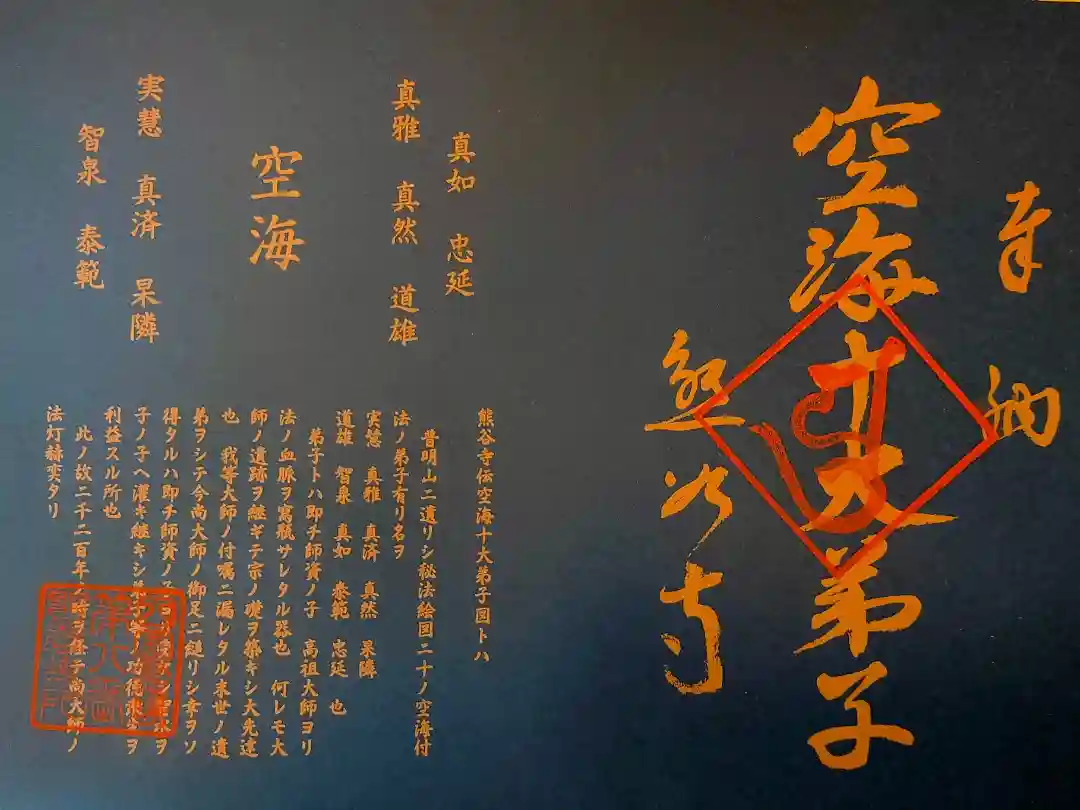 奉納
空海十大弟子
熊谷寺
真如 忠延
真雅 真然 道雄
空海
実慧 真済 杲隣
智泉 泰範
熊谷寺伝空海十大弟子図トハ
普明山ニ遺リシ秘法絵図ニ十ノ空海付
法ノ弟子有リ名ヲ
実慧 真雅 真済 真然 杲隣
道雄 智泉 真如 泰範 忠延 也
弟子トハ即チ師資ノ子 高祖大師ヨリ
法ノ血脈ヲ写瓶サレタル器也 何レモ大
師ノ遺跡ヲ継ギテ宗ノ礎ヲ築キシ大先達
也 我等大師ノ付嘱ニ漏レタル末世ノ遺
弟ヲシテ今尚大師ノ御足ニ縋リシ幸ヲソ
得タルハ即チ師資ノ子
子ノ子ヘ灌ギ継キシ ノ功徳 ヲ
利益スル所也
此ノ故ニ千二百年ノ時ヲ経テ尚大師ノ
法灯赫奕タリ